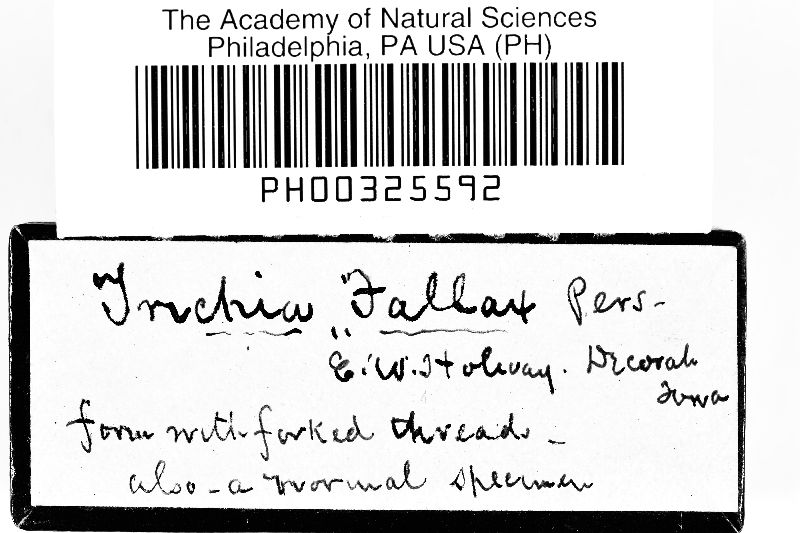 The Academy of Natural Sciences
Philadelphia, PA USA (PH)
PH00325592
"Trichia "Fallax Pers-
E. W. Holway. Decorah
Iowa
form with forked threads -
also - a normal specimen